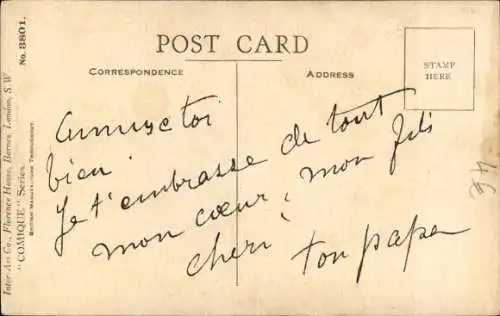 POST CARD
CORRESPONDENCE
ADDRESS
STAMP
HERE
Amuse toi
bien.
Je t'embrasse de tout
mon cœur, mon fils
cheri
ton papa
4€
Inter-Art Co., Florence House, Barnes, London, S.W.
"COMIQUE" Series.
BRITISH MANUFACTURE THROUGHOUT
No. 3801.